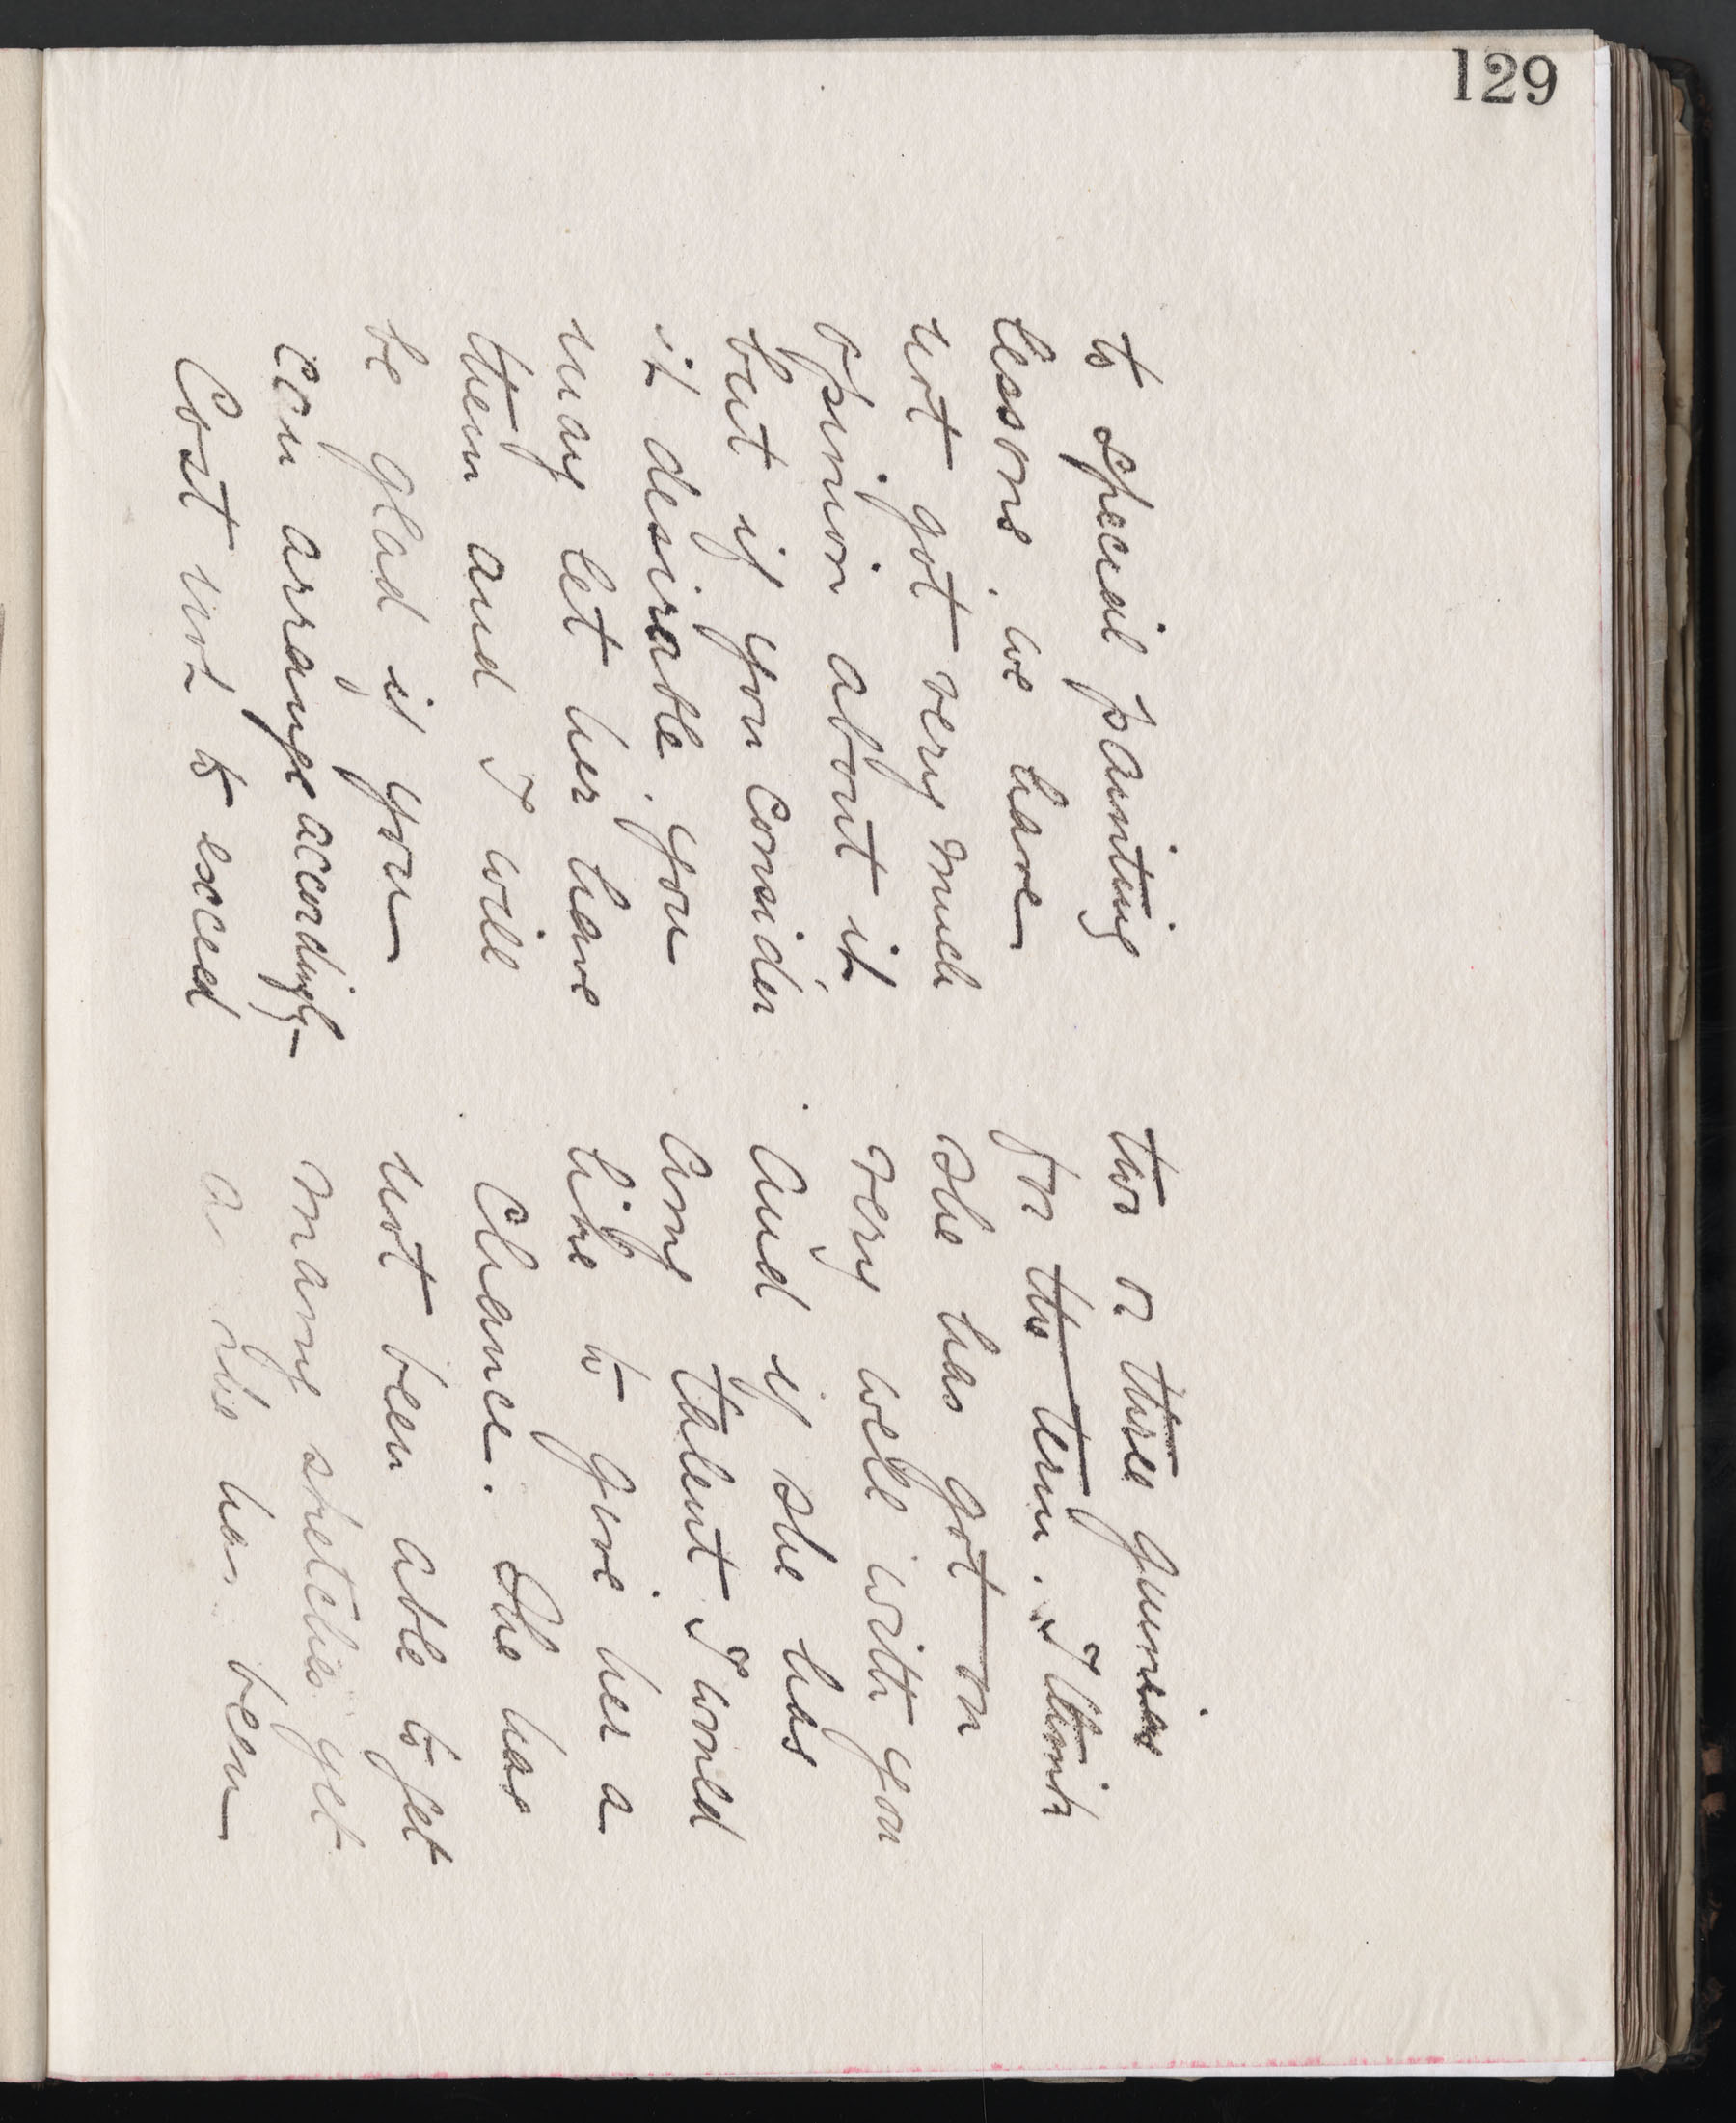 129
to special painting
lessons, we have
not got very much
opinion about it
but if you consider
it desirable, you
may let her have
them and I will
be glad if you
can arrange accordingly -
Cost not to exceed
two or three guineas
for the term. I think
she has got on
very well with you
and if she has
any talent I would
like to give her a
chance. She has
not been able to get
many sketches yet
as she has been